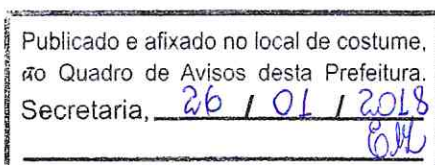 Publicado e afixado no local de costume,
ao Quadro de Avisos desta Prefeitura.
Secretaria, 26 / 01 / 2018